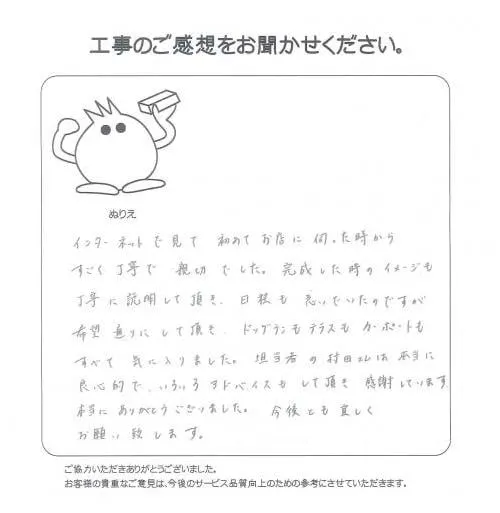 工事のご感想をお聞かせください。
ぬりえ
インターネットで見て 初めてお店に伺った時から
すごく丁寧で 親切でした。完成した時のイメージも
丁寧に説明して頂き、日程も 急いでいたのですが
希望通りにして頂き、ドッグランもテラスもカーポートも
すべて気に入りました。担当者の村田さんは本当に
良心的で、いろいろアドバイスもして頂き 感謝しています
本当にありがとうございました。今後とも宜しく
お願い致します。
ご協力いただきありがとうございました。
お客様の貴重なご意見は、今後のサービス品質向上のための参考にさせていただきます。